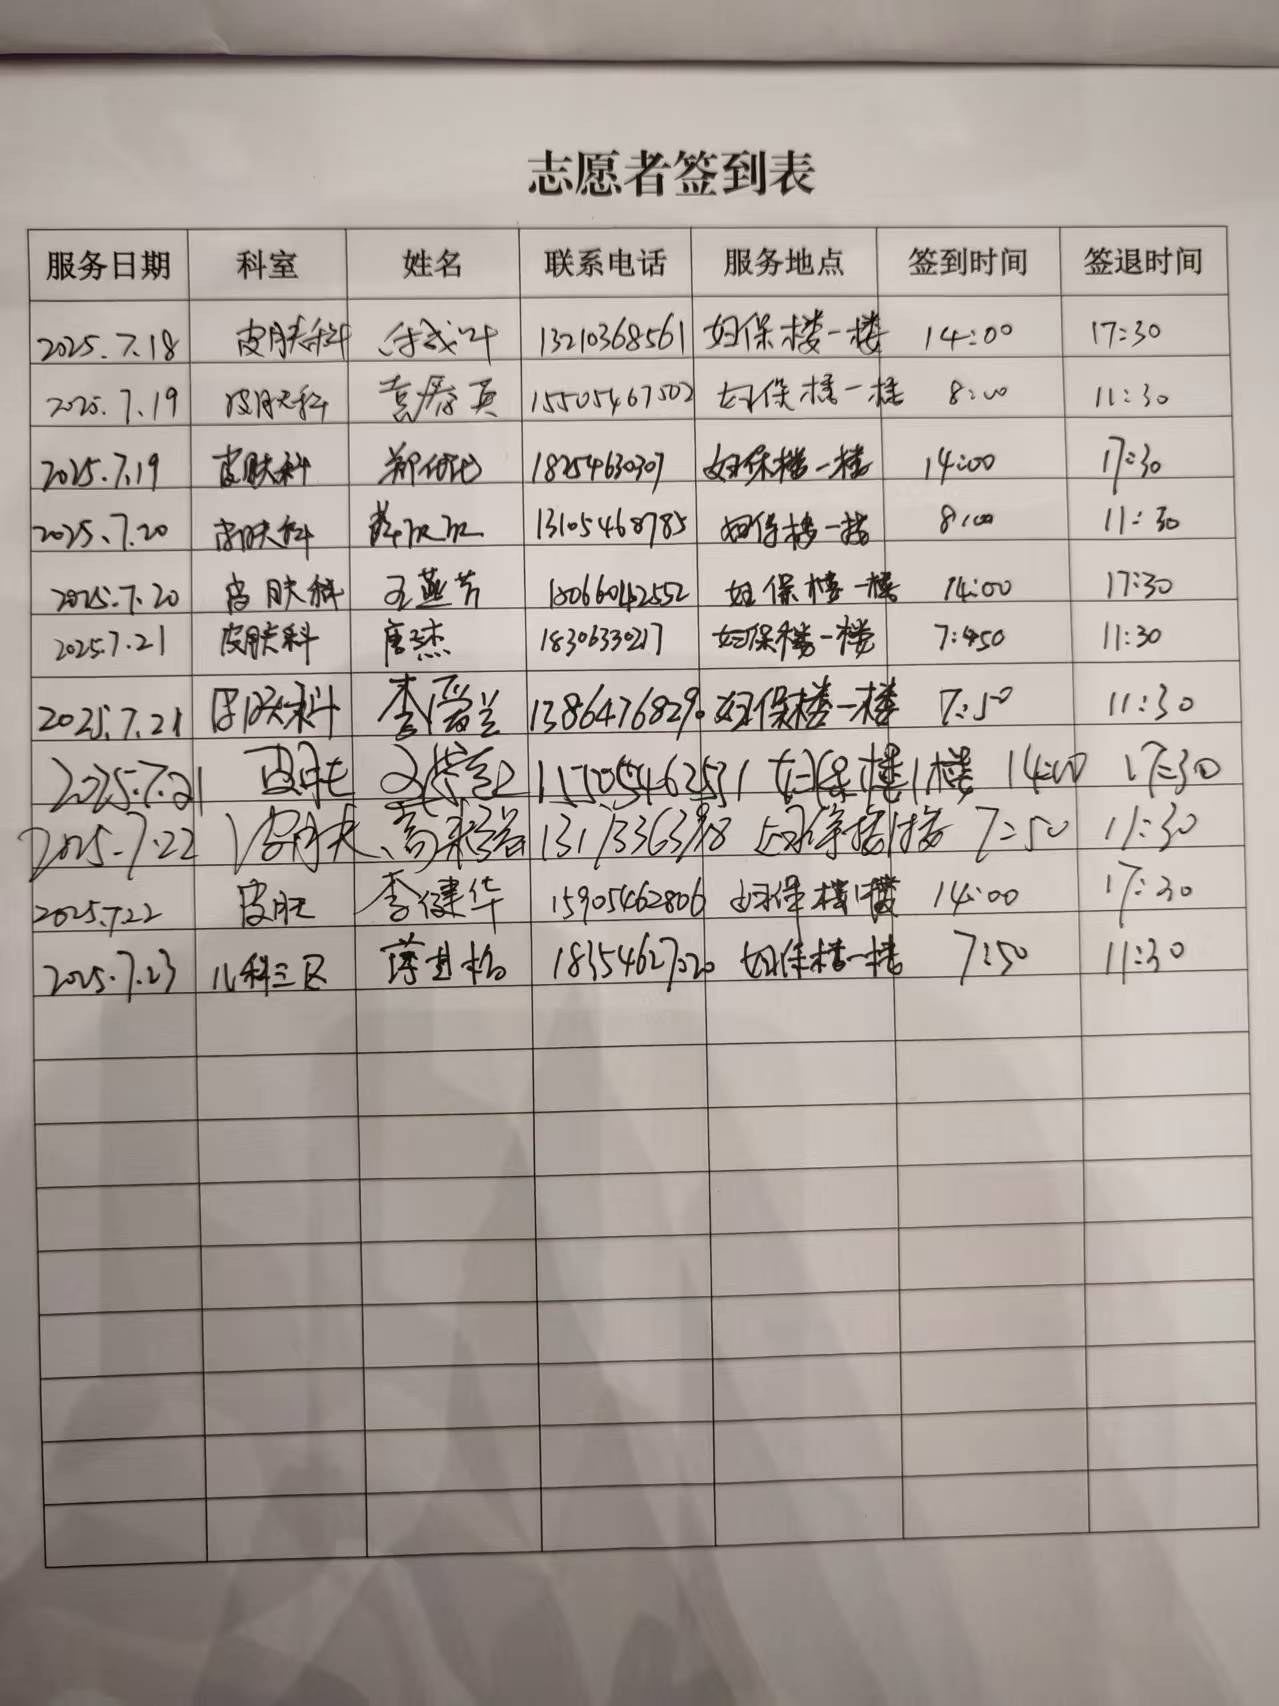 志愿者签到表
服务日期 科室 姓名 联系电话 服务地点 签到时间 签退时间
2025.7.18 皮肤科 13210368561 妇保楼一楼 14:00 17:30
2025.7.19 皮肤科 袁春英 15505467502 妇保楼一楼 8:00 11:30
2025.7.19 皮肤科 18254630307 妇保楼一楼 14:00 17:30
2025.7.20 皮肤科 13105468785 妇保楼一楼 8:00 11:30
2025.7.20 皮肤科 王燕芳 18066042552 妇保楼一楼 14:00 17:30
2025.7.21 皮肤科 唐杰 18306330217 妇保楼一楼 7:50 11:30
2025.7.21 皮肤科 13864768290 妇保楼一楼 7:50 11:30
2025.7.21 皮肤 15505462531 妇保楼1楼 14:00 17:30
2025.7.22 皮肤 妇保楼1楼 7:50 11:30
2025.7.22 皮肤 李健华 15905462806 妇保楼1楼 14:00 17:30
2025.7.23 儿科三区 18354627020 妇保楼一楼 7:50 11:30